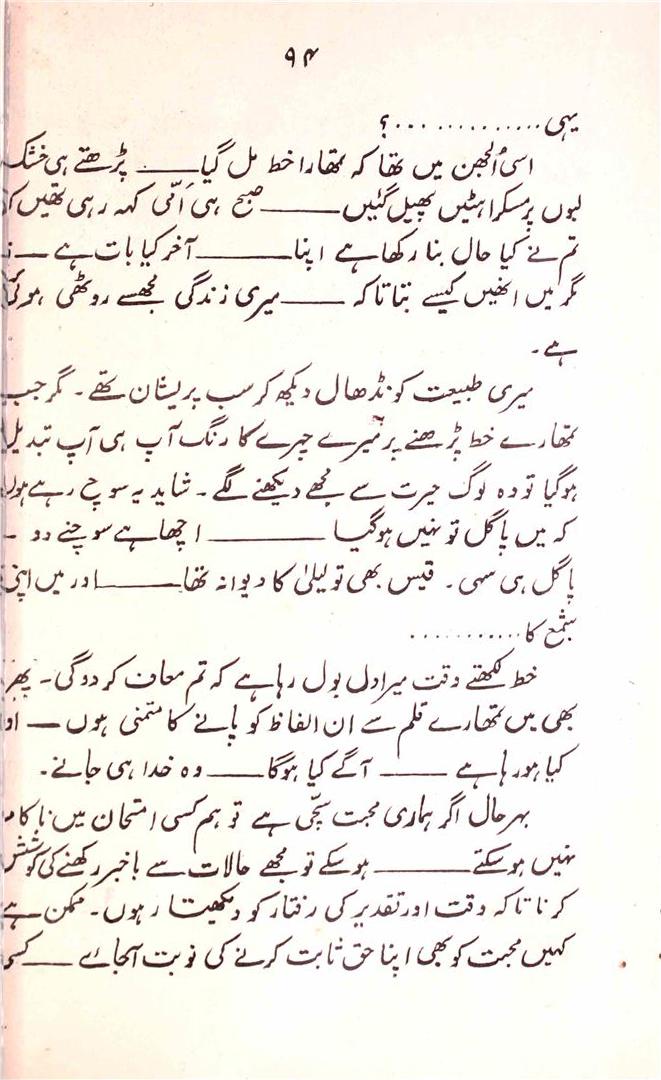 ۹۴
یہی . . . . . . . . . . . . ؟
اسی اُلجھن میں تھا کہ تمھارا خط مل گیا ــــــ پڑھتے ہی خشک
لبوں پر مسکراہٹیں پھیل گئیں ــــــ صبح ہی اَمّی کہہ رہی تھیں کہ
تم نے کیا حال بنا رکھا ہے اپنا ــــــ آخر کیا بات ہے ــــــ
مگر میں انھیں کیسے بتاتا کہ ــــــ میری زندگی مجھسے روٹھی ہوئی
ہے۔
میری طبیعت کو نڈھال دیکھ کر سب پریشان تھے۔ مگر جب
تمھارے خط پڑھنے پر میرے چہرے کا رنگ آپ ہی آپ تبدیل
ہوگیا تو وہ لوگ حیرت سے مجھے دیکھنے لگے۔ شاید یہ سوچ رہے ہوں
کہ میں پاگل تو نہیں ہوگیا ــــــ اچھا ہے سوچنے دو ۔
پاگل ہی سہی۔ قیس بھی تو لیلیٰ کا دیوانہ تھا ــــــ اور میں اپنی
شمع کا . . . . . . . . . . .
خط لکھتے وقت میرا دل بول رہا ہے کہ تم معاف کردوگی۔ پھر
بھی میں تمھارے قلم سے ان الفاظ کو پانے کا متمنی ہوں ــــــ
کیا ہو رہا ہے ــــــ آگے کیا ہوگا ــــــ وہ خدا ہی جانے۔
بہرحال اگر ہماری محبت سچّی ہے تو ہم کسی امتحان میں ناکام
نہیں ہوسکتے ــــــ ہوسکے تو مجھے حالات سے باخبر رکھنے کی کوشش
کرنا تاکہ وقت اور تقدیر کی رفتار کو دیکھتا رہوں۔ ممکن ہے
کہیں محبت کو بھی اپنا حق ثابت کرنے کی نوبت آجائے ــــــ کسی